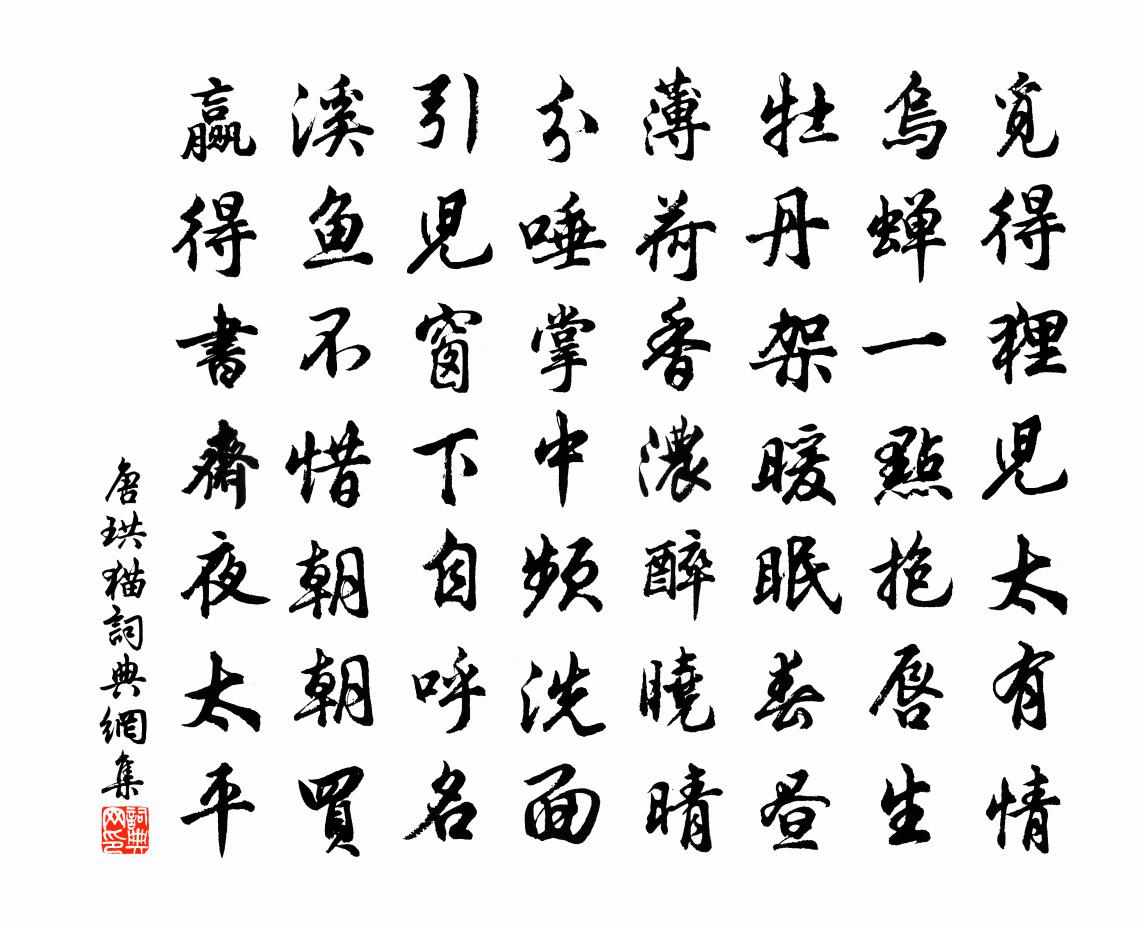 覓得狸児太有情
烏蝉一點抱唇生
牡丹架暖眠春昼
薄荷香濃醉曉晴
分唾掌中频洗面
引児窗下自呼名
溪鱼不惜朝朝買
贏得書齋夜太平
唐珙猫詞典網集
詞典
网